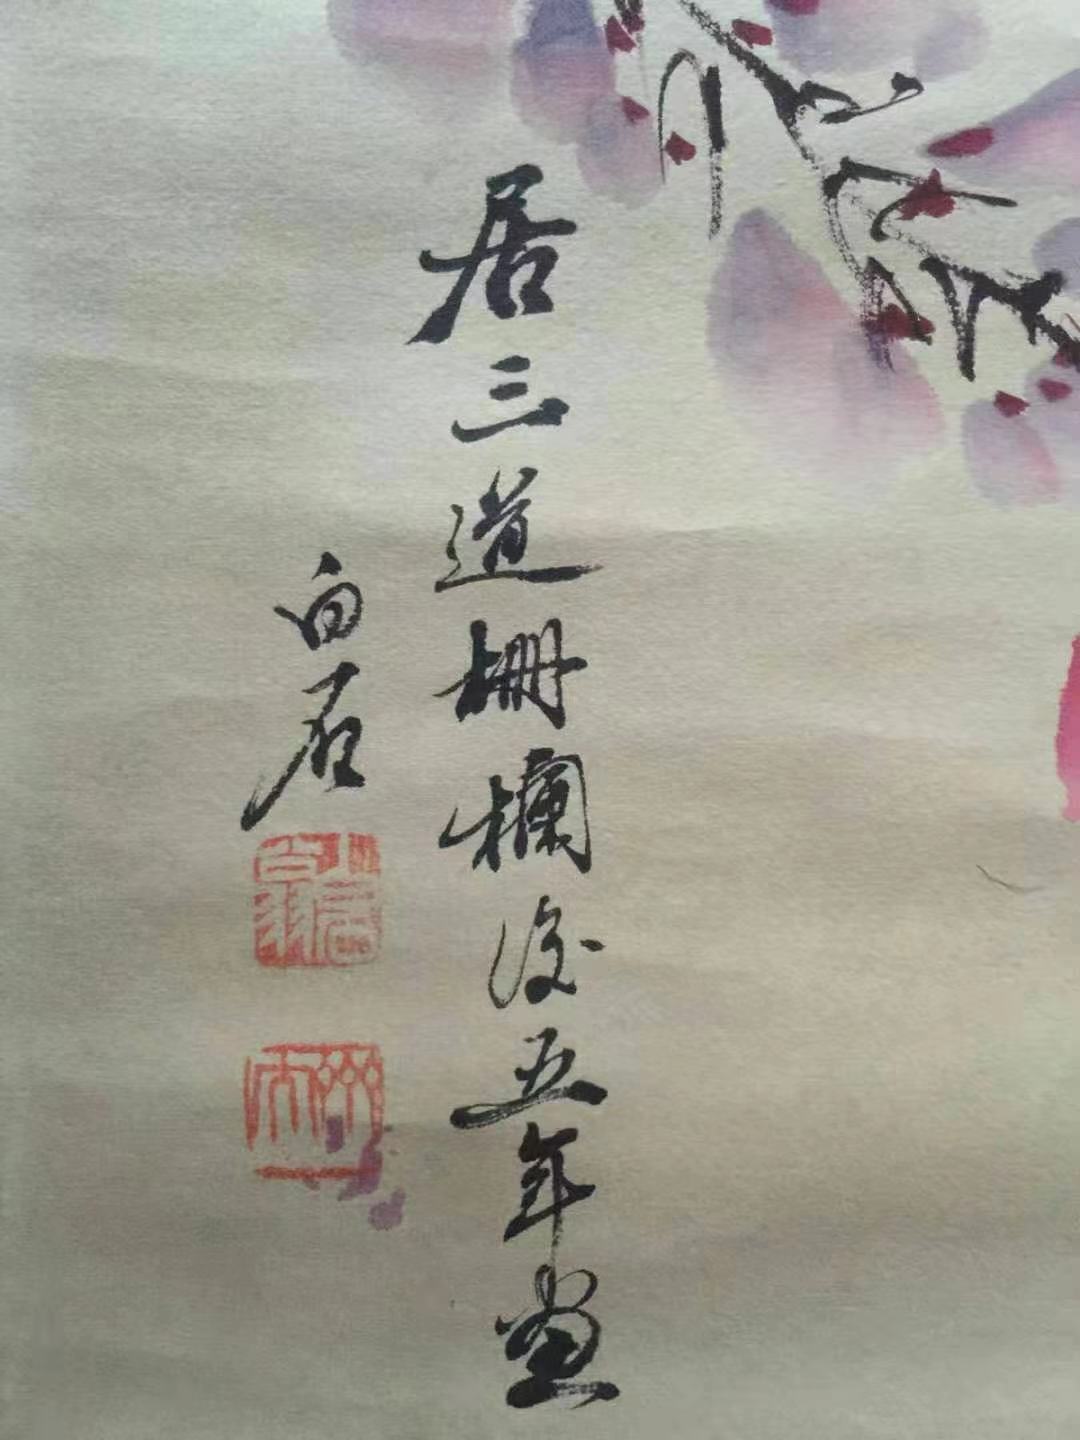 居三道栅欄后五年画
白石